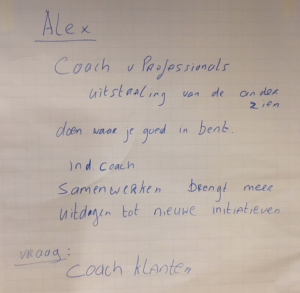 Alex
Coach v Professionals
uitstraling van de ander
zien
doen waar je goed in bent.
ind. coach
Samenwerken brengt meer
uitdagen tot nieuwe initiatieven
vraag:
Coach klanten